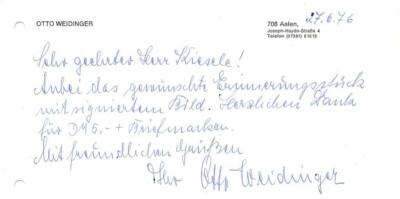 OTTO WEIDINGER
708 Aalen, 27.6.76
Joseph-Haydn-Straße 4
Telefon (07361) 61618
Sehr geehrter Herr Kiesele!
Anbei das gewünschte Erinnerungsstück
mit signiertem Bild. Herzlichen Dank
für DM 5,- + Briefmarken.
Mit freundlichen Grüßen
Ihr Otto Weidinger